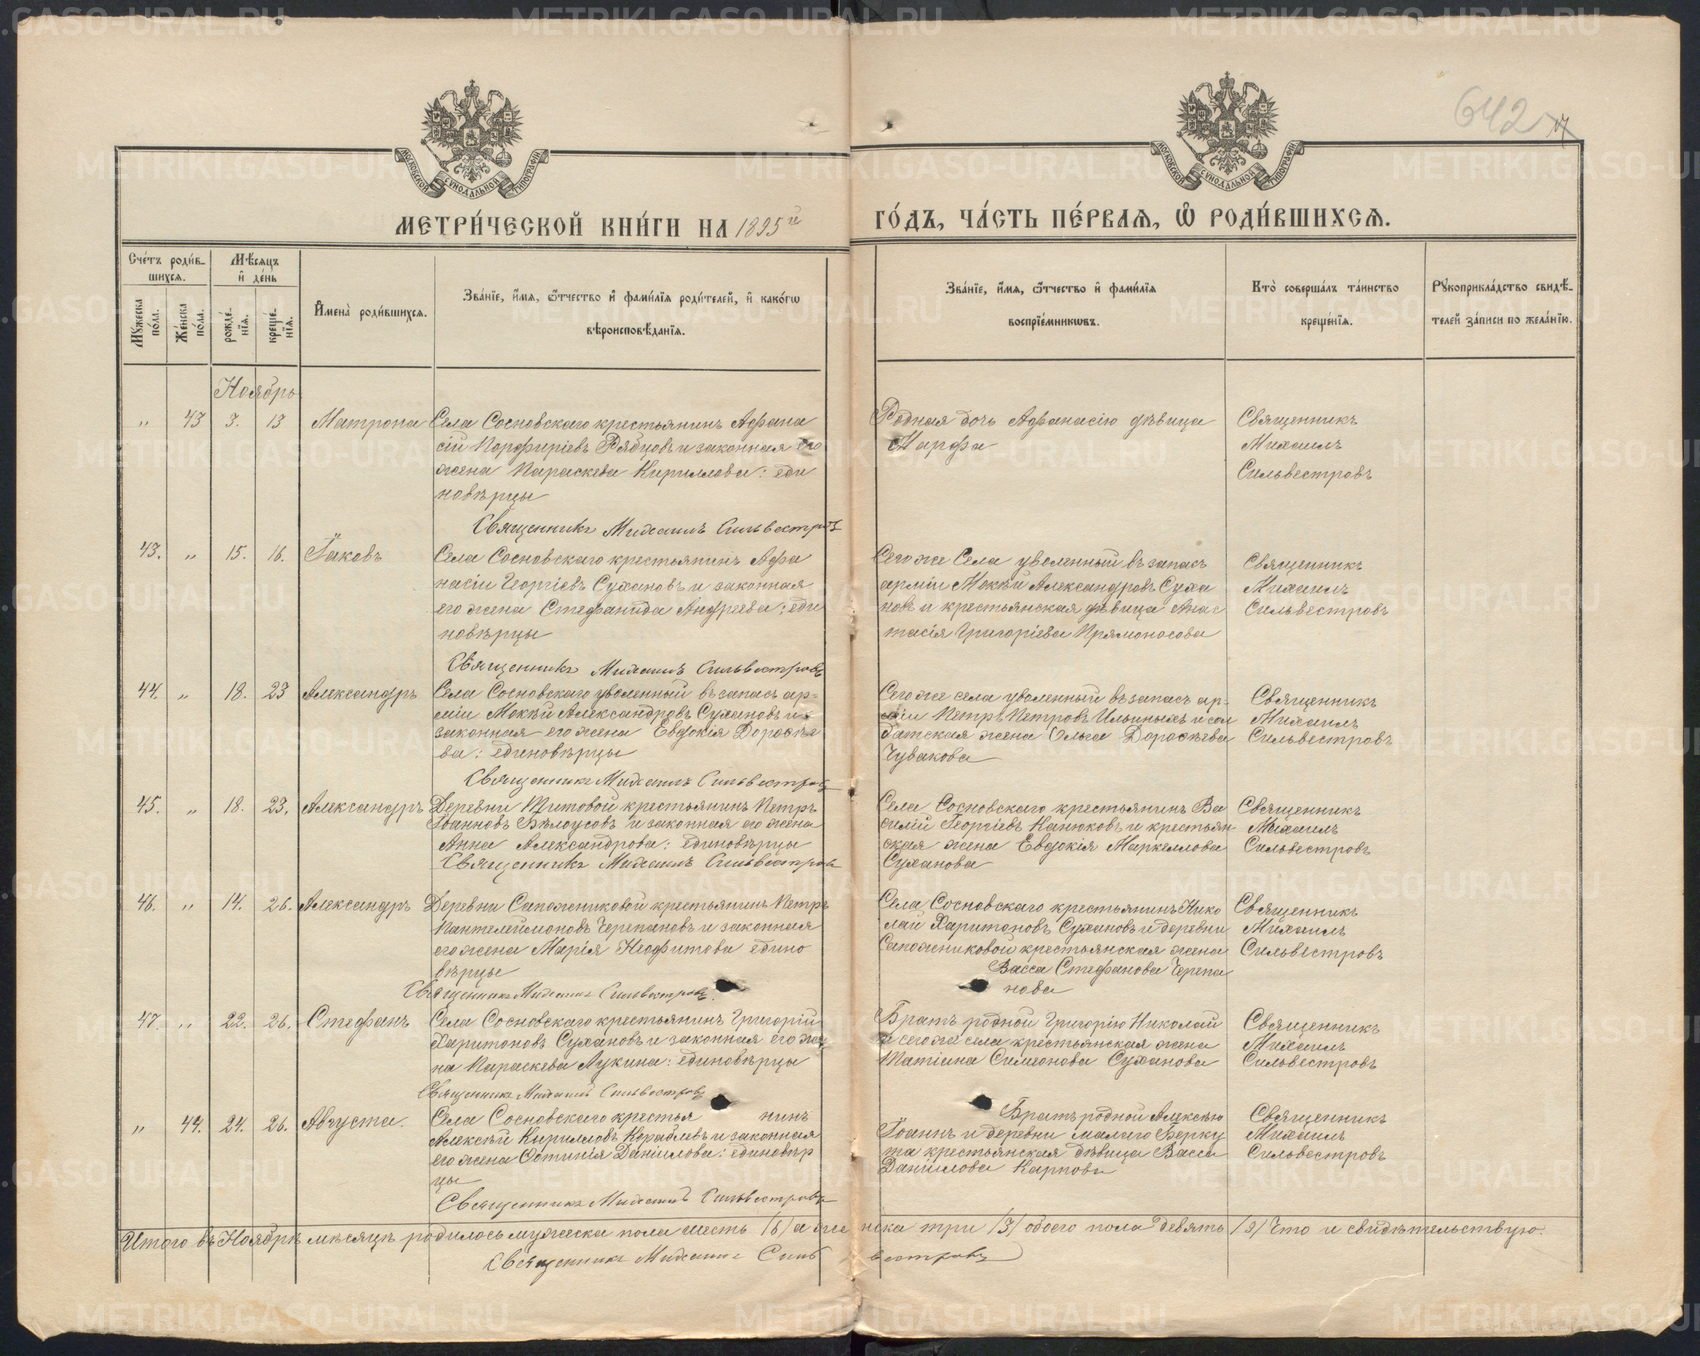 642
МЕТРИ́ЧЕСКОЙ КНИ́ГИ НА 1895й ГО́ДЪ, ЧА́СТЬ ПЕ́РВАЯ, Ѡ РОДИ́ВШИХСЯ.
Сче́тъ роди́в-
шихся.
Мѣ́сяцъ
и де́нь
Мꙋ́жеска
по́ла.
Же́нска
по́ла.
рожде́-
нїя.
креще́-
нїя.
И҆мена̀ роди́вшихся.
Зва́нїе, и҆́мя, ѻ҆́тчество и҆ фами́лїя роди́телей, и҆ како́гѡ
вѣроисповѣ́данїя.
Зва́нїе, и҆́мя, ѻ҆́тчество и҆ фами́лїя
воспрїе́мникѡвъ.
Кто̀ соверша́лъ та́инство
креще́нїя.
Рꙋкоприкла́дство свидѣ́-
телей за́писи по жела́нїю.
Ноябрь
„ 43 3. 13 Матрона
Села Сосновскаго крестьянинъ Афана
сій Порфиріевъ Рябцовъ и законная его
жена Параскева Кириллова: еди
новѣрцы
Священникъ Михаилъ Сильвестровъ
Родная дочь Афанасію дѣвица
Марфа
Священникъ
Михаилъ
Сильвестровъ
43. „ 15. 16. Іаковъ
Села Сосновскаго крестьянинъ Афа
насій Георгіевъ Сухановъ и законная
его жена Стефанида Андреева: еди
новѣрцы
Священникъ Михаилъ Сильвестровъ
Сегоже Села уволенный въ запасъ
арміи Мокѣй Александровъ Суха
новъ и крестьянская дѣвица Анас
тасія Григоріева Прямоносова
Священникъ
Михаилъ
Сильвестровъ
44. „ 18. 23 Александръ
Села Сосновскаго уволенный въ запасъ ар-
міи Мокѣй Александровъ Сухановъ и
законная его жена Евдокія Дороѳѣе
ва: единовѣрцы
Священникъ Михаилъ Сильвестровъ
Сегоже села уволенный въ запасъ ар-
міи Петръ Петровъ Ильиныхъ и сол
датская жена Ольга Дороѳѣева
Чувакова
Священникъ
Михаилъ
Сильвестровъ
45. „ 18. 23. Александръ
Деревни Титовой крестьянинъ Петръ
Іоанновъ Бѣлоусовъ и законная его жена
Анна Александрова: единовѣрцы
Священникъ Михаилъ Сильвестровъ
Села Сосновскаго крестьянинъ Ва
силій Георгіевъ Канюковъ и крестьян
ская жена Евдокія Маркеллова
Суханова
Священникъ
Михаилъ
Сильвестровъ
46. „ 14. 26. Александръ
Деревни Сапожниковой крестьянинъ Петръ
Пантелеймоновъ Черепановъ и законная
его жена Марія Неофитова едино
вѣрцы
Священникъ Михаилъ Сильвестровъ.
Села Сосновскаго крестьянинъ Нико
лай Харитоновъ Сухановъ и деревни
Сапожниковой крестьянская жена
Васса Стефанова Черепа
нова
Священникъ
Михаилъ
Сильвестровъ
47. „ 22. 26. Стефанъ
Села Сосновскаго крестьянинъ Григорій
Харитоновъ Сухановъ и законная его же
на Параскева Лукина: единовѣрцы
Священникъ Михаилъ Сильвестровъ
Братъ родной Григорію Николай
и сегоже села крестьянская жена
Татіана Симеонова Суханова
Священникъ
Михаилъ
Сильвестровъ
„ 44. 24. 26. Августа.
Села Сосновскаго крестья нинъ
Алексѣй Кирилловъ Кораблевъ и законная
его жена Устинія Даніилова: единовѣр
цы
Священникъ Михаилъ Сильвестровъ
Братъ родной Алексѣю
Іоаннъ и деревни малаго Берку
та крестьянская дѣвица Васса
Даниилова Карпова
Священникъ
Михаилъ
Сильвестровъ
Итого въ Ноябрѣ мѣсяцѣ родилось мужеска пола шесть (6) а женска три (3) обоего пола девять (9) Что и свидѣтельствую.
Священникъ Михаилъ Сильвестровъ